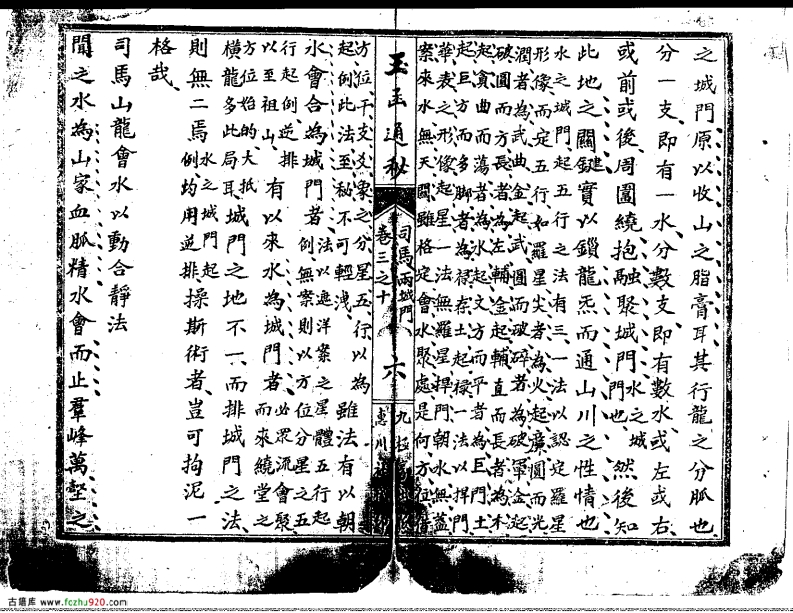 之城門原以收山之脂膏耳其行龍之分脈也
分一支即有一水分數支即有數水或左或右
或前或後周圍繞抱融聚城門水之城門也然後知
此地之關鍵實以鎖龍炁而通山川之性情也
水之城門起五行之法有三一法以認定羅星
形像而定五行如羅星尖者為火起廉圓而光
潤者為武曲金起武圓而破碎者為破軍金起
破圓而方長者為左輔金起輔直而長者為木
起貪曲而蕩者為水起文方而平者為巨門土
起巨方而多脚者為祿存土起祿一法以捍門
華表之形像起星一法無羅星捍門朝水無蓋
案來水無天關雖格定會水聚處是何方位
玉函通秘
卷三之十
司馬兩城門
六
九極
惠川
方位干支爻象之分星五行以為雖法有以朝
起例此法至秘不可輕洩
水會合為城門者法以遮洋案之星體五行起例無案則以方位分星之五
行起例逆排有以來水為城門者必眾流會聚而來繞堂之
以至祖山
方位始的大抵
橫龍多此局耳城門之地不一而排城門之法
則無二焉水之城門起例均用逆排操斯術者豈可拘泥一
格哉
司馬山龍會水以動合靜法
聞之水為山家血脈精水會而止羣峰萬壑之
古籍库 www.fczhu920.com